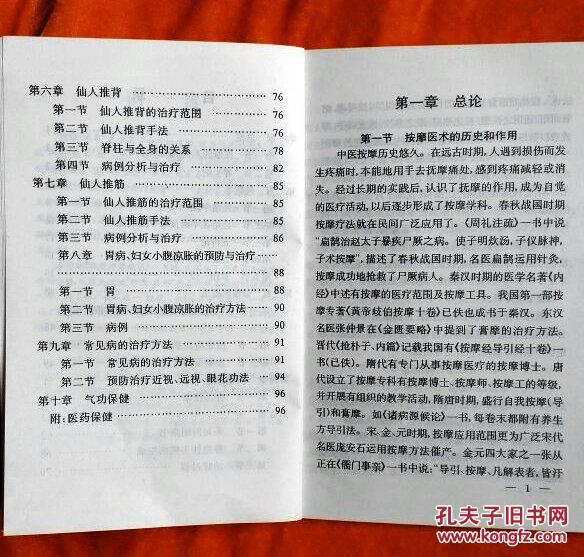 第六章 仙人推背 ……………………… 76
第一节 仙人推背的治疗范围 ……………… 76
第二节 仙人推背手法 ……………………… 76
第三节 脊柱与全身的关系 ………………… 78
第四节 病例分析与治疗 …………………… 82
第七章 仙人推筋 ……………………… 85
第一节 仙人推筋的治疗范围 ……………… 85
第二节 仙人推筋手法 ……………………… 85
第三节 病例分析与治疗 …………………… 86
第八章 胃病、妇女小腹凉胀的预防与治疗 ……
……………………………… 88
第一节 胃 ……………………………… 88
第二节 胃病、妇女小腹凉胀的治疗方法 …… 90
第三节 病例 ……………………………… 90
第九章 常见病的治疗方法 ……………… 91
第一节 常见病的治疗方法 ………………… 91
第二节 预防治疗近视、远视、眼花功法 …… 94
第十章 气功保健 ……………………… 96
附:医药保健 ……………………………… 96
第一章 总论
第一节 按摩医术的历史和作用
中医按摩历史悠久。在远古时期,人遇到损伤而发
生疼痛时,本能地用手去抚摩痛处,感到疼痛减轻或消
失。经过长期的实践后,认识了抚摩的作用,成为自觉
的医疗活动,以后逐步形成了按摩学科。春秋战国时期
按摩疗法就在民间广泛应用了。《周礼注疏》一书中说
“扁鹊治赵太子暴疾尸厥之病。使子明炊汤,子仪脉神,
子术按摩”,描述了春秋战国时期,名医扁鹊运用针灸、
按摩成功地抢救了尸厥病人。秦汉时期的医学名著《内
经》中述有按摩的医疗范围及按摩工具。我国第一部按
摩专著《黄帝歧伯按摩十卷》已佚也成书于秦汉。东汉
名医张仲景在《金匮要略》中提到了膏摩的治疗方法。
晋代《抢朴子、内篇》记载我国有《按摩经导引经十卷》一
书(已佚)。隋代有专门从事按摩医疗的按摩博士。唐
代设立了按摩专科有按摩博士、按摩师、按摩工的等级,
并开展有组织的教学活动,隋唐时期,盛行自我按摩(导
引)和膏摩。如《诸病源候论》一书,每卷末都附有养生
方导引法。宋、金、元时期,按摩应用范围更为广泛宋代
名医庞安石运用按摩方法催产。金元四大家之一张从
正在《儒门事亲》一书中说:“导引、按摩、凡解表者,皆汗
— 1 —
孔夫子旧书网